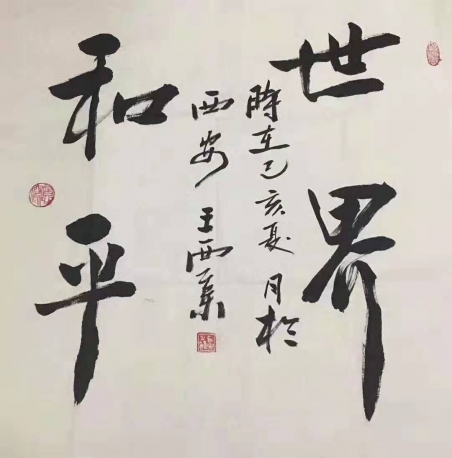 世界
時在己亥夏月於
西安 王西業
和平